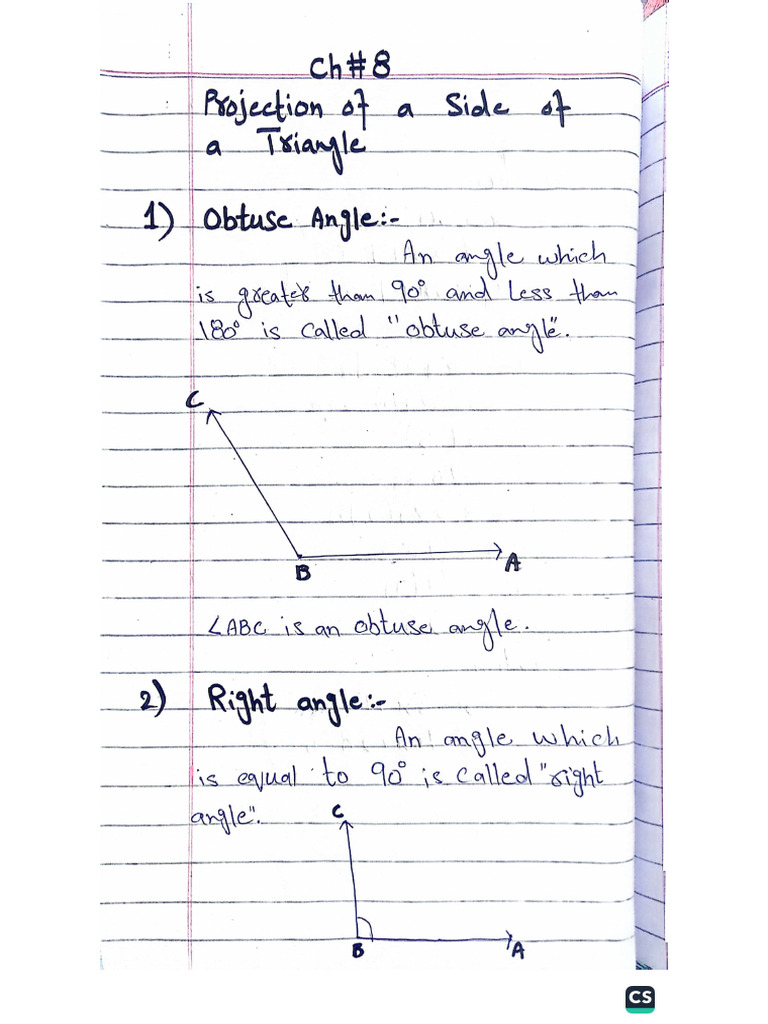 Ch#8
Projection of a Side of
a Triangle
1) Obtuse Angle:-
An angle which
is greater than 90° and less than
180° is called "obtuse angle".
C
B
A
∠ABC is an obtuse angle.
2) Right angle:-
An angle which
is equal to 90° is called "right
angle".
C
B
A
CS